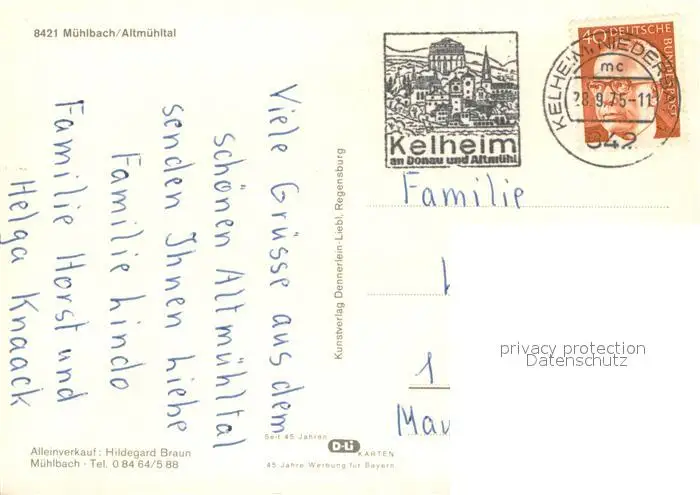 8421 Mühlbach/Altmühltal
Viele Grüsse aus dem
schönen Altmühltal
senden Ihnen liebe
Familie Lindo
Familie Horst und
Helga Knaack
Alleinverkauf: Hildegard Braun
Mühlbach - Tel. 0 84 64/5 88
Kunstverlag Dennerlein-Liebl, Regensburg
Seit 45 Jahren
D-Li
KARTEN
45 Jahre Werbung für Bayern
Kelheim
an Donau und Altmühl
KELHEIM, NIEDER
mc
28.9.75-11
842
40 DEUTSCHE BUNDESPOST
Familie
1
Mau
privacy protection
Datenschutz